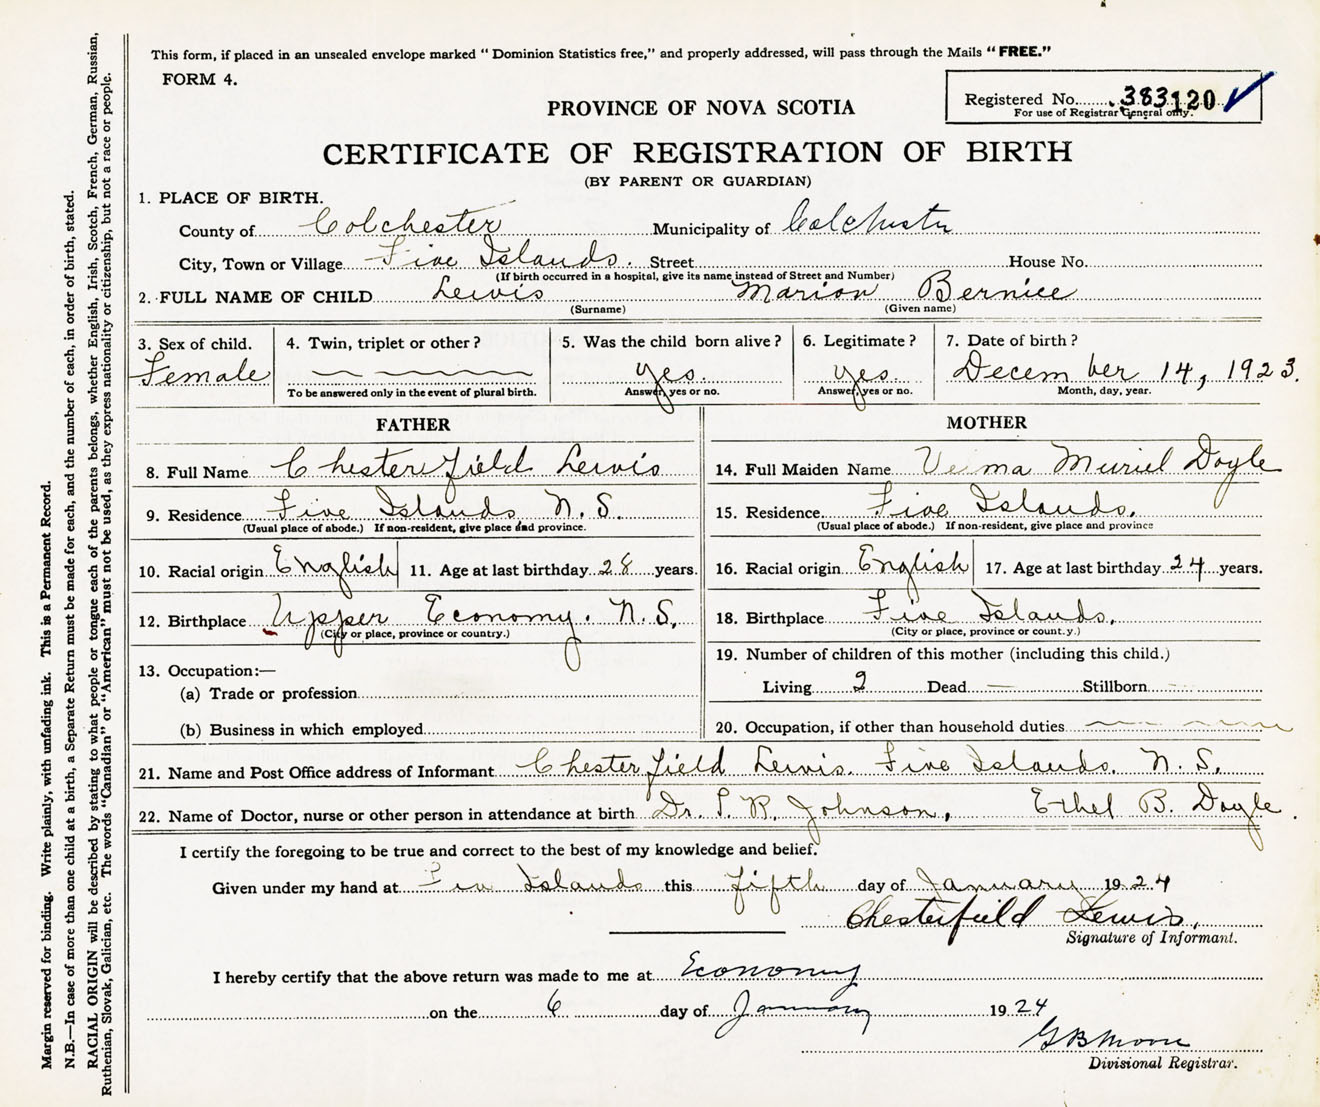 This form, if placed in an unsealed envelope marked "Dominion Statistics free," and properly addressed, will pass through the Mails "FREE."
FORM 4.
Registered No. 383120
For use of Registrar General only.
PROVINCE OF NOVA SCOTIA
CERTIFICATE OF REGISTRATION OF BIRTH
(BY PARENT OR GUARDIAN)
1. PLACE OF BIRTH.
County of Colchester Municipality of Colchester
City, Town or Village Five Islands. Street House No.
(If birth occurred in a hospital, give its name instead of Street and Number)
2. FULL NAME OF CHILD Lewis Marion Bernice
(Surname) (Given name)
3. Sex of child. 4. Twin, triplet or other? 5. Was the child born alive? 6. Legitimate? 7. Date of birth?
Female yes. yes. December 14, 1923.
To be answered only in the event of plural birth. Answer, yes or no. Answer, yes or no. Month, day, year.
FATHER MOTHER
8. Full Name Chesterfield Lewis 14. Full Maiden Name Muriel Doyle
9. Residence Five Islands N. S. 15. Residence Five Islands.
(Usual place of abode.) If non-resident, give place and province. (Usual place of abode.) If non-resident, give place and province
10. Racial origin English 11. Age at last birthday 28 years. 16. Racial origin English 17. Age at last birthday 24 years.
12. Birthplace Upper Economy. N. S. 18. Birthplace Five Islands.
(City or place, province or country.) (City or place, province or count.y.)
13. Occupation:— 19. Number of children of this mother (including this child.)
(a) Trade or profession Living 2 Dead — Stillborn —
(b) Business in which employed 20. Occupation, if other than household duties
21. Name and Post Office address of Informant Chesterfield Lewis. Five Islands. N. S.
22. Name of Doctor, nurse or other person in attendance at birth Dr. R. Johnson, Ethel B. Doyle.
I certify the foregoing to be true and correct to the best of my knowledge and belief.
Given under my hand at Five Islands this fifth day of January 1924
Chesterfield Lewis.
Signature of Informant.
I hereby certify that the above return was made to me at Economy
on the 6 day of January 1924
G B Moore
Divisional Registrar.
Margin reserved for binding. Write plainly, with unfading ink. This is a Permanent Record.
N.B.—In case of more than one child at a birth, a Separate Return must be made for each, and the number of each, in order of birth, stated.
RACIAL ORIGIN will be described by stating to what people or tongue each of the parents belongs, whether English, Irish, Scotch, French, German, Russian,
Ruthenian, Slovak, Galician, etc. The words "Canadian" or "American" must not be used, as they express nationality or citizenship, but not a race or people.